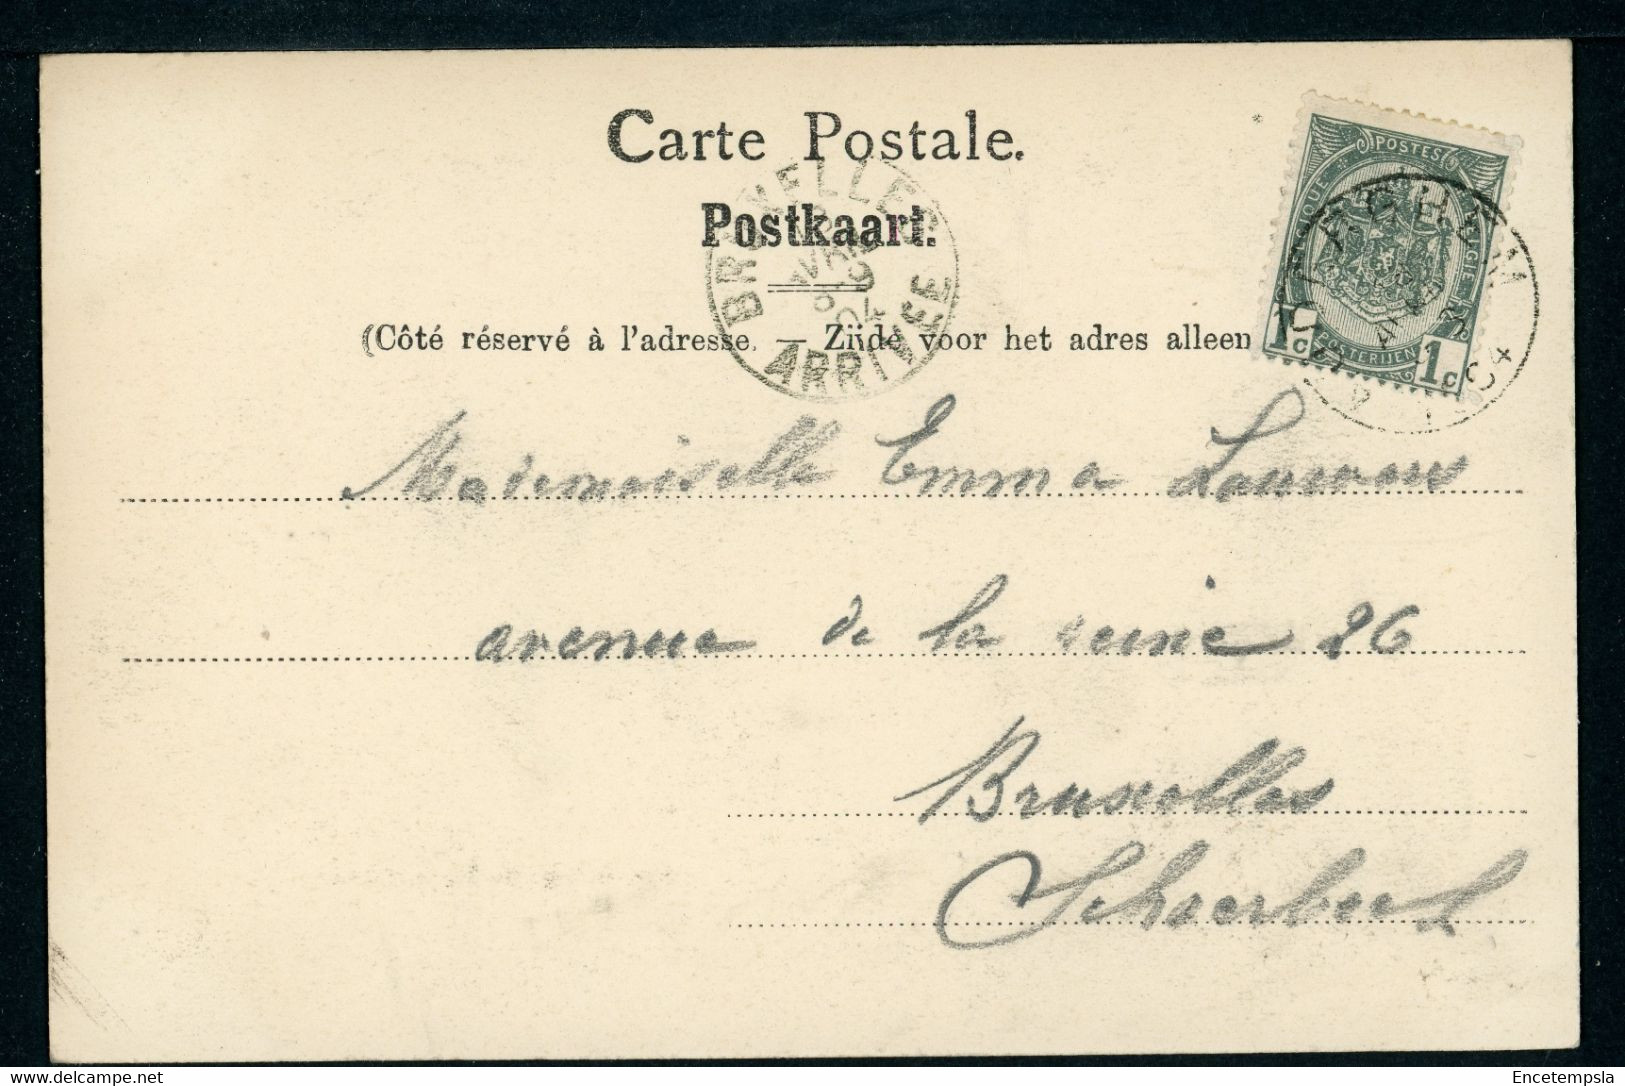 Carte Postale.
Postkaart.
BRUXELLES
ARRIVÉE
04
(Côté réservé à l'adresse. — Zijde voor het adres alleen
POSTES
BELGIE
POSTERIJEN
1c 1c
Mademoiselle Emma
avenue de la reine 26
Bruxelles
Schaerbeek
Encetempsla